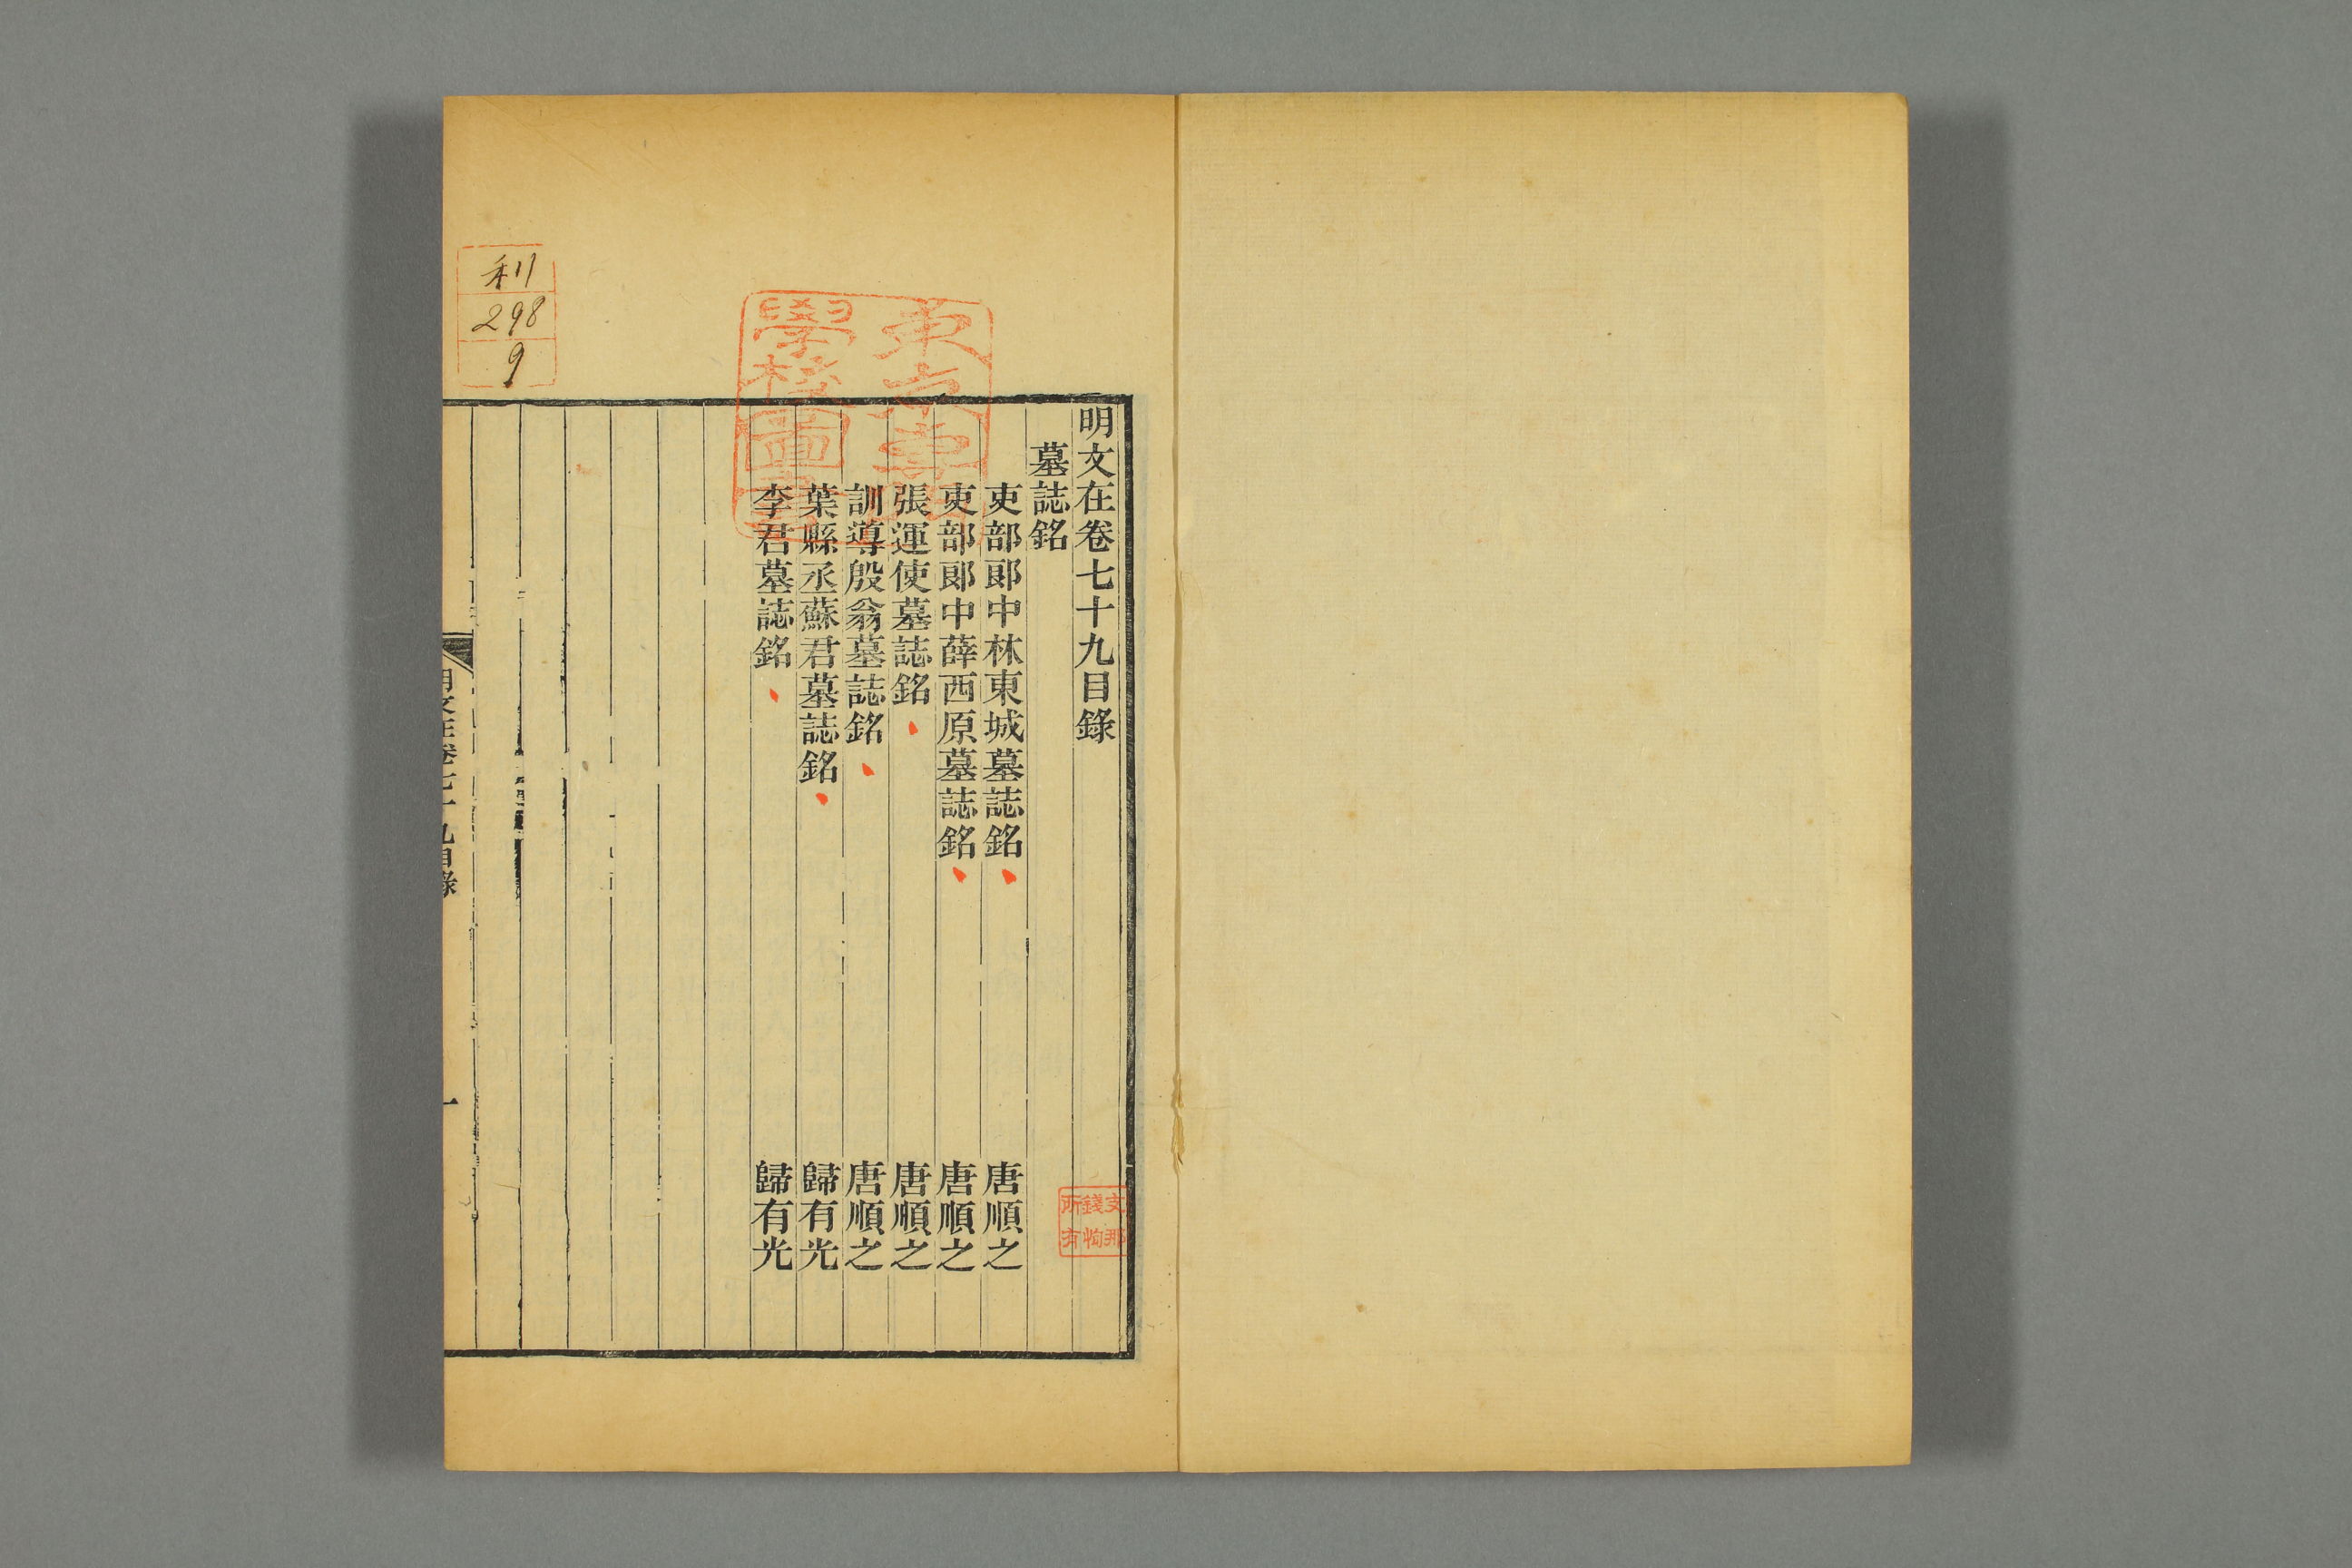 明文在卷七十九目錄
墓誌銘
吏部郎中林東城墓誌銘 唐順之
吏部郎中薛西原墓誌銘 唐順之
張運使墓誌銘 唐順之
訓導殷翁墓誌銘 唐順之
葉縣丞蘇君墓誌銘 歸有光
李君墓誌銘 歸有光
明文在卷七十九目錄
一
利
298
9
支那
錢恂
所有
東京專門
學校圖書